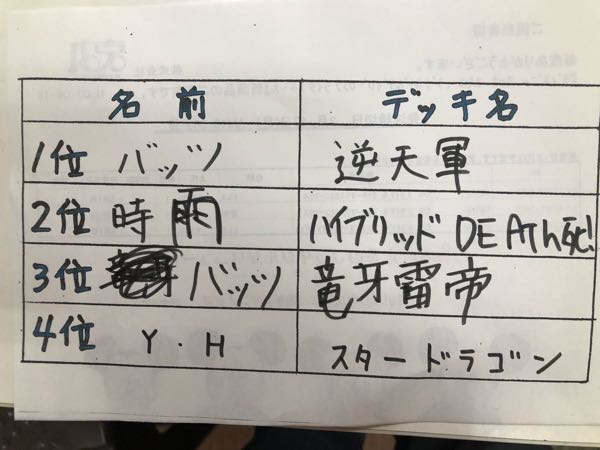 名前 デッキ名
1位 バッツ 逆天軍
2位 時雨 ハイブリッド DEATh死!
3位 バッツ 竜牙雷帝
4位 Y・H スタードラゴン